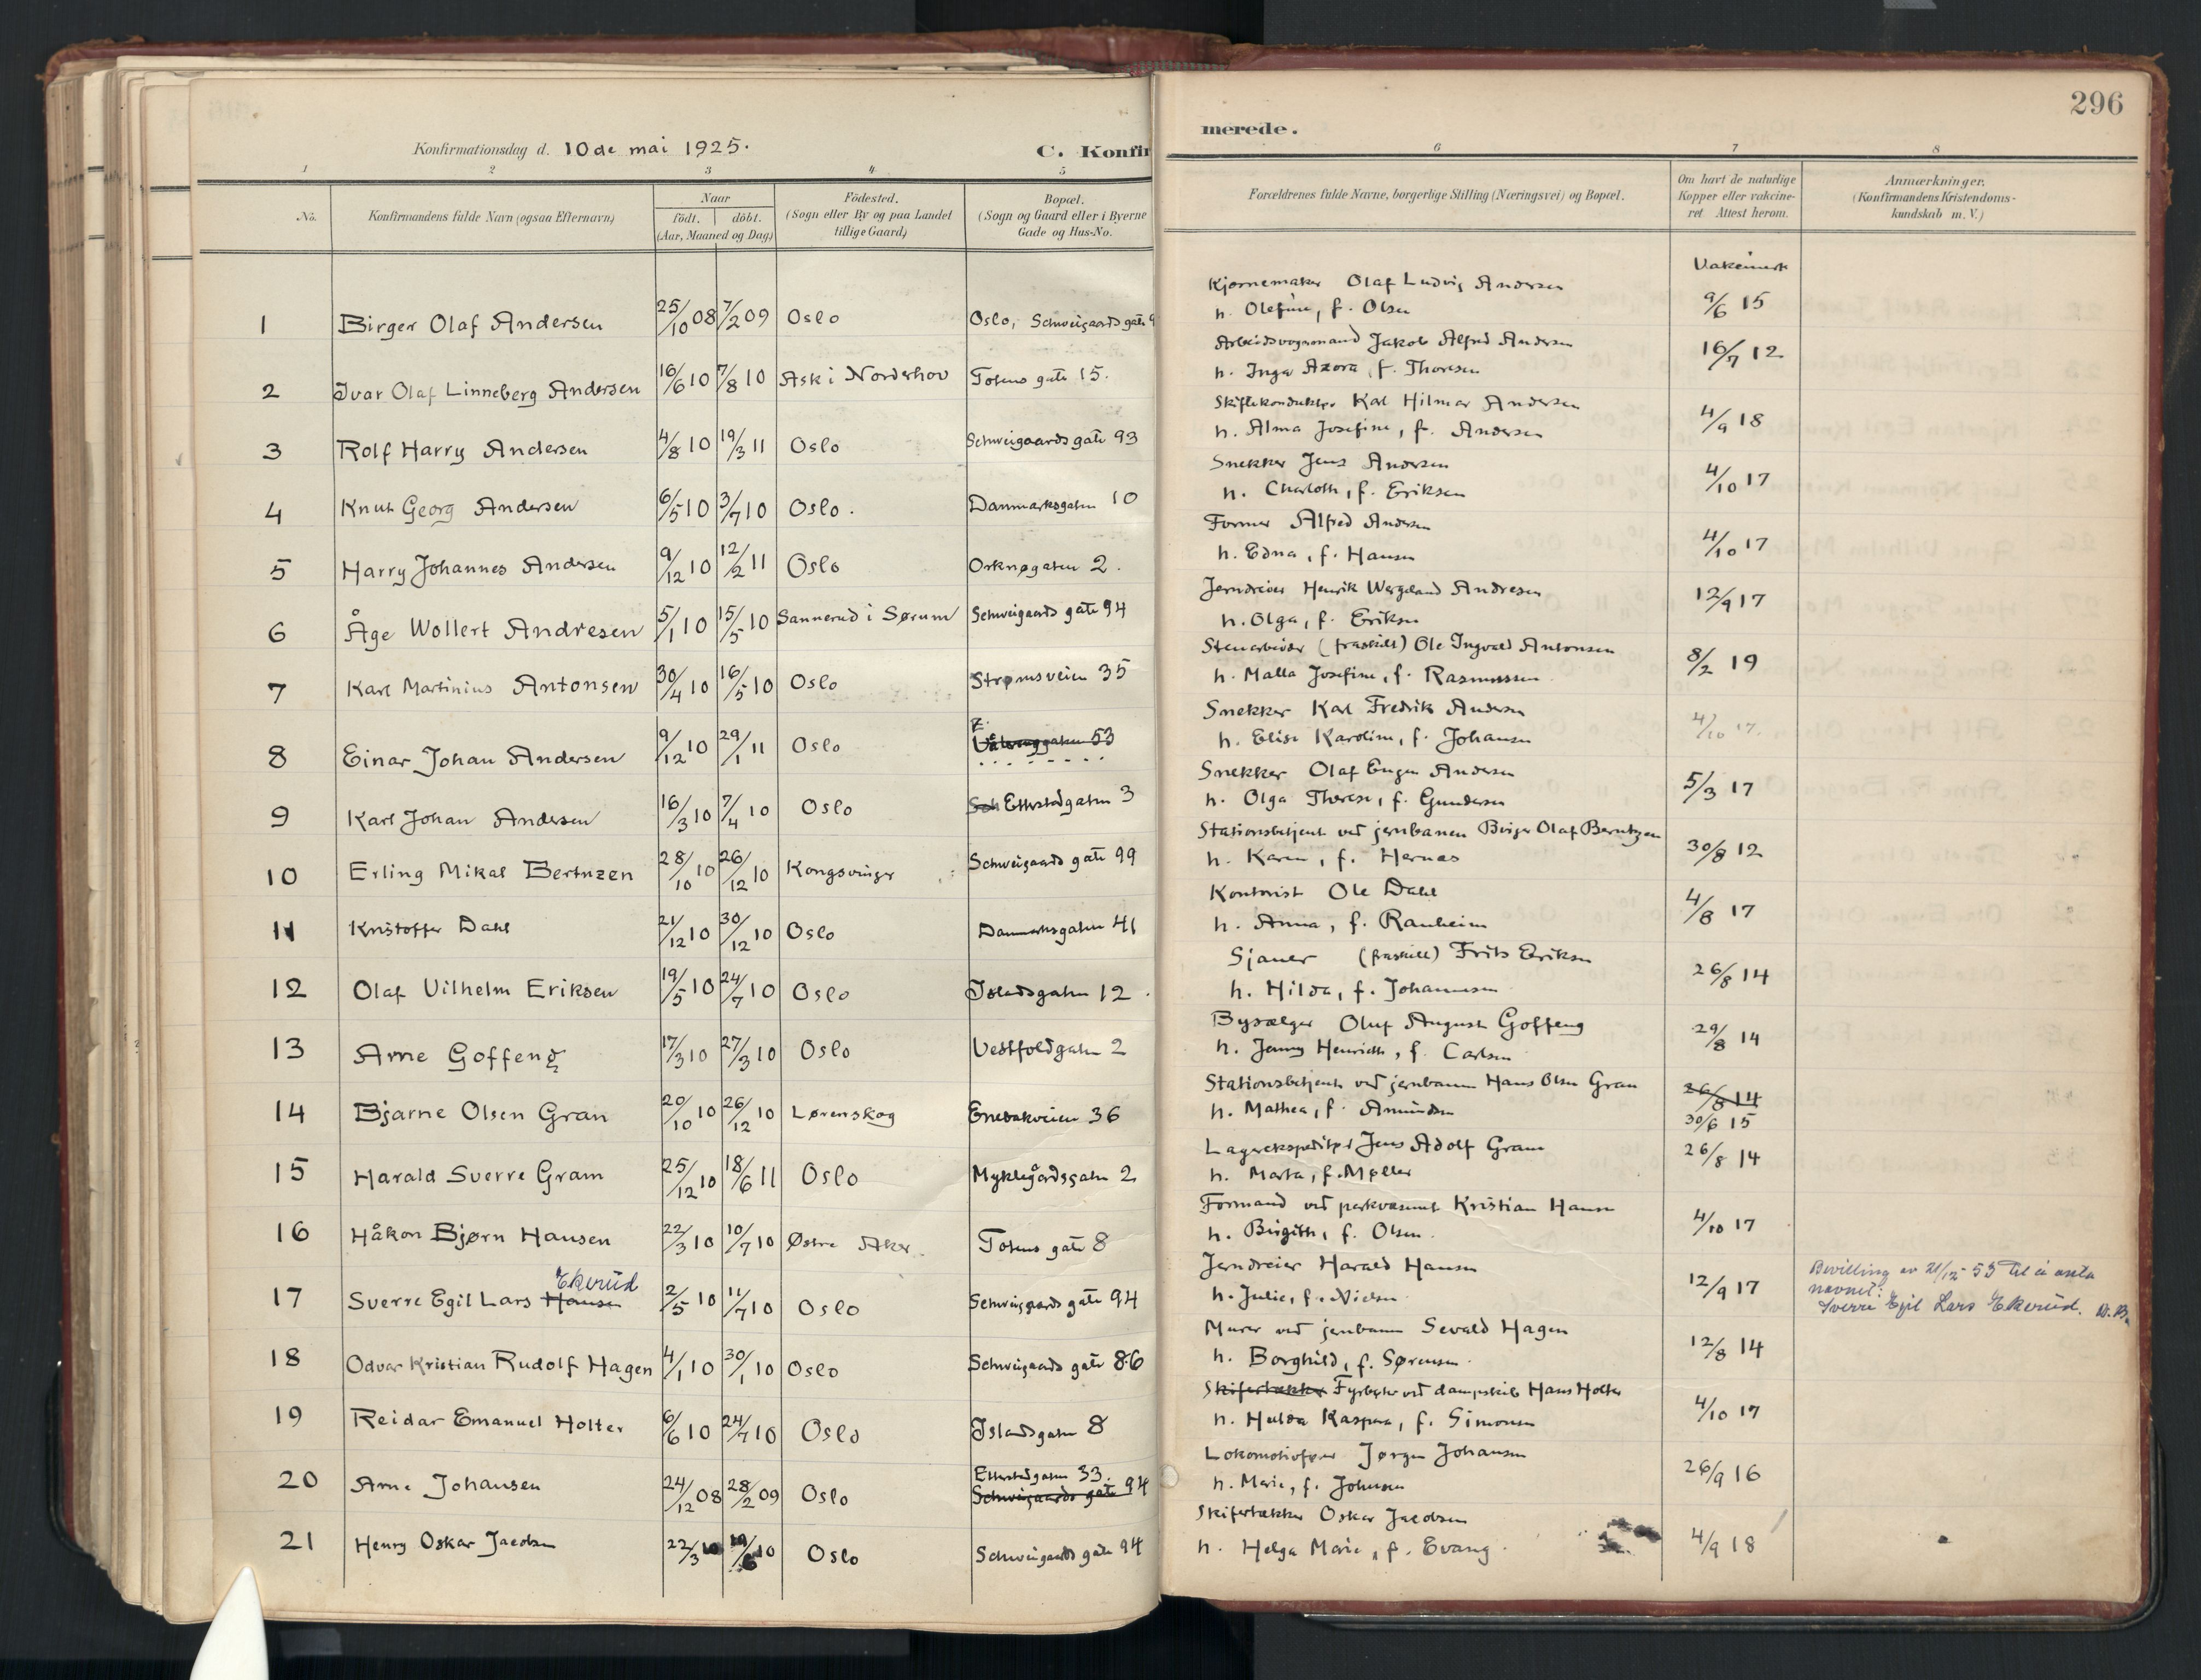 296
Konfirmationsdag d. 10de mai 1925.
C. Konfir
merede.
1 2 3 4 5 6 7 8
No.
Konfirmandens fulde Navn (ogsaa Efternavn)
Naar
født. døbt.
(Aar, Maaned og Dag)
Födested.
(Sogn eller By og paa Landet
tillige Gaard)
Bopæl.
(Sogn og Gaard eller i Byerne
Gade og Hus-No.
Forældrenes fulde Navne, borgerlige Stilling (Næringsvei) og Bopæl.
Om havt de naturlige
Kopper eller vakcine-
ret. Attest herom.
Anmærkninger.
(Konfirmandens Kristendoms-
kundskab m. V.)
1 Birger Olaf Andersen 25/10 08 7/2 09 Oslo Oslo, Schweigaards gate 9
Olaf Ludvig Andersen
h. Olefine, f. Olsen 9/6 15
2 Ivar Olaf Linneberg Andersen 16/6 10 7/8 10 Ask i Norderhov Totens gate 15.
Arbeidsvognmand Jakob Alfred Andersen
h. Inga Azora, f. Thoresen 16/7 12
3 Rolf Harry Andersen 4/8 10 19/3 11 Oslo Schweigaards gate 93
Skiftekonduktør Karl Hilmar Andersen
h. Alma Josefine, f. Andersen 4/9 18
4 Knut Georg Andersen 6/5 10 3/7 10 Oslo. Danmarksgaten 10
Snekker Jens Andersen
h. Charlotte, f. Eriksen 4/10 17
5 Harry Johannes Andersen 9/12 10 12/2 11 Oslo Orknøgaten 2.
Former Alfred Andersen
h. Edna, f. Hansen 4/10 17
6 Åge Wollert Andresen 5/1 10 15/5 10 Sannerud i Sørum Schweigaards gate 94
Jerndreier Henrik Wergeland Andresen
h. Olga, f. Eriksen 12/9 17
7 Karl Martinius Antonsen 30/4 10 16/5 10 Oslo Strømsveien 35
Stenarbeider (fraskilt) Ole Ingvald Antonsen
h. Malla Josefine, f. Rasmussen 8/2 19
8 Einar Johan Andersen 9/12 10 29/1 11 Oslo Vålenggaten 53
Snekker Karl Fredrik Andersen
h. Elise Karoline, f. Johansen 4/10 17.
9 Karl Johan Andersen 16/3 10 7/4 10 Oslo Etterstadgaten 3
Snekker Olaf Eugen Andersen
h. Olga Therese, f. Gundersen 5/3 17
10 Erling Mikal Berntzen 28/10 10 26/12 10 Kongsvinger Schweigaards gate 99
Stationsbetjent ved jernbanen Birger Olaf Berntzen
h. Karen, f. Hernæs 30/8 12
11 Kristoffer Dahl 21/12 10 30/12 10 Oslo Danmarksgaten 41
Kontorist Ole Dahl
h. Anna, f. Ranheim 4/8 17
12 Olaf Vilhelm Eriksen 19/5 10 24/7 10 Oslo Islandsgaten 12.
Sjauer (fraskilt) Frits Eriksen
h. Hilda, f. Johannesen 26/8 14
13 Arne Goffeng 17/3 10 27/3 10 Oslo Vestfoldgaten 2
Bysælger Oluf August Goffeng
h. Jenny Henriette, f. Carlsen 29/8 14
14 Bjarne Olsen Gran 20/10 10 26/12 10 Lørenskog Enebakveien 36
Stationsbetjent ved jernbanen Hans Olsen Gran 26/8 14
h. Mathea, f. Amundsen 30/6 15
15 Harald Sverre Gram 25/12 10 18/6 11 Oslo Myklegårdsgaten 2
Lagerekspeditør Jens Adolf Gram
h. Marta, f. Møller 26/8 14
16 Håkon Bjørn Hansen 22/3 10 10/7 10 Østre Aker. Totens gate 8
Formand ved parkvæsenet Kristian Hansen
h. Birgithe, f. Olsen. 4/10 17
Ekerud
17 Sverre Egil Lars Hansen 2/5 10 11/7 10 Oslo Schweigaards gate 94
Jerndreier Harald Hansen
h. Julie, f. Nielsen. 12/9 17
Bevilling av 21/12-53 til å anta
navnet:
Sverre Egil Lars Ekerud.
18 Odvar Kristian Rudolf Hagen 4/1 10 30/1 10 Oslo Schweigaards gate 86
Murer ved jernbanen Sevald Hagen
h. Borghild, f. Sørensen. 12/8 14
19 Reidar Emanuel Holter 6/6 10 24/7 10 Oslo Islandsgaten 8
Skifertækker Fyrbøter ved dampskib Hans Holter
h. Hulda Kaspara, f. Simonsen 4/10 17
20 Arne Johansen 24/12 08 28/2 09 Oslo Etterstadgaten 33.
Schweigaards gate 94
Lokomotivfører Jørgen Johansen
h. Marie, f. Johnsen 26/9 16
21 Henry Oskar Jacobsen 22/3 10 10 Oslo Schweigaards gate 94
Skifertækker Oskar Jacobsen
h. Helga Marie, f. Evang. 4/9 18